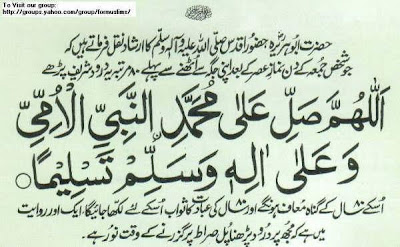 To Visit our group:
http://groups.yahoo.com/group/formuslims/
حضرت ابوہریرہؓ حضور اقدس صلی اللہ علیہ وآلہ وسلم کا ارشاد نقل فرماتے ہیں کہ
جو شخص جمعہ کے دن نمازِ عصر کے بعد اپنی جگہ سے اٹھنے سے پہلے ۸۰ مرتبہ یہ درود شریف پڑھے
اَللّٰهُمَّ صَلِّ عَلٰى مُحَمَّدِ النَّبِيِّ الْاُمِّيِّ
وَعَلٰى اٰلِهٖ وَسَلِّمْ تَسْلِيْمًا
اسکے ۸۰ سال کے گناہ معاف ہونگے اور ۸۰ سال کی عبادت کا ثواب اسکے لئے لکھا جائیگا، ایک اور روایت
میں ہے کہ مجھ پر درود پڑھنا پل صراط پر گزرنے کے وقت نور ہے۔